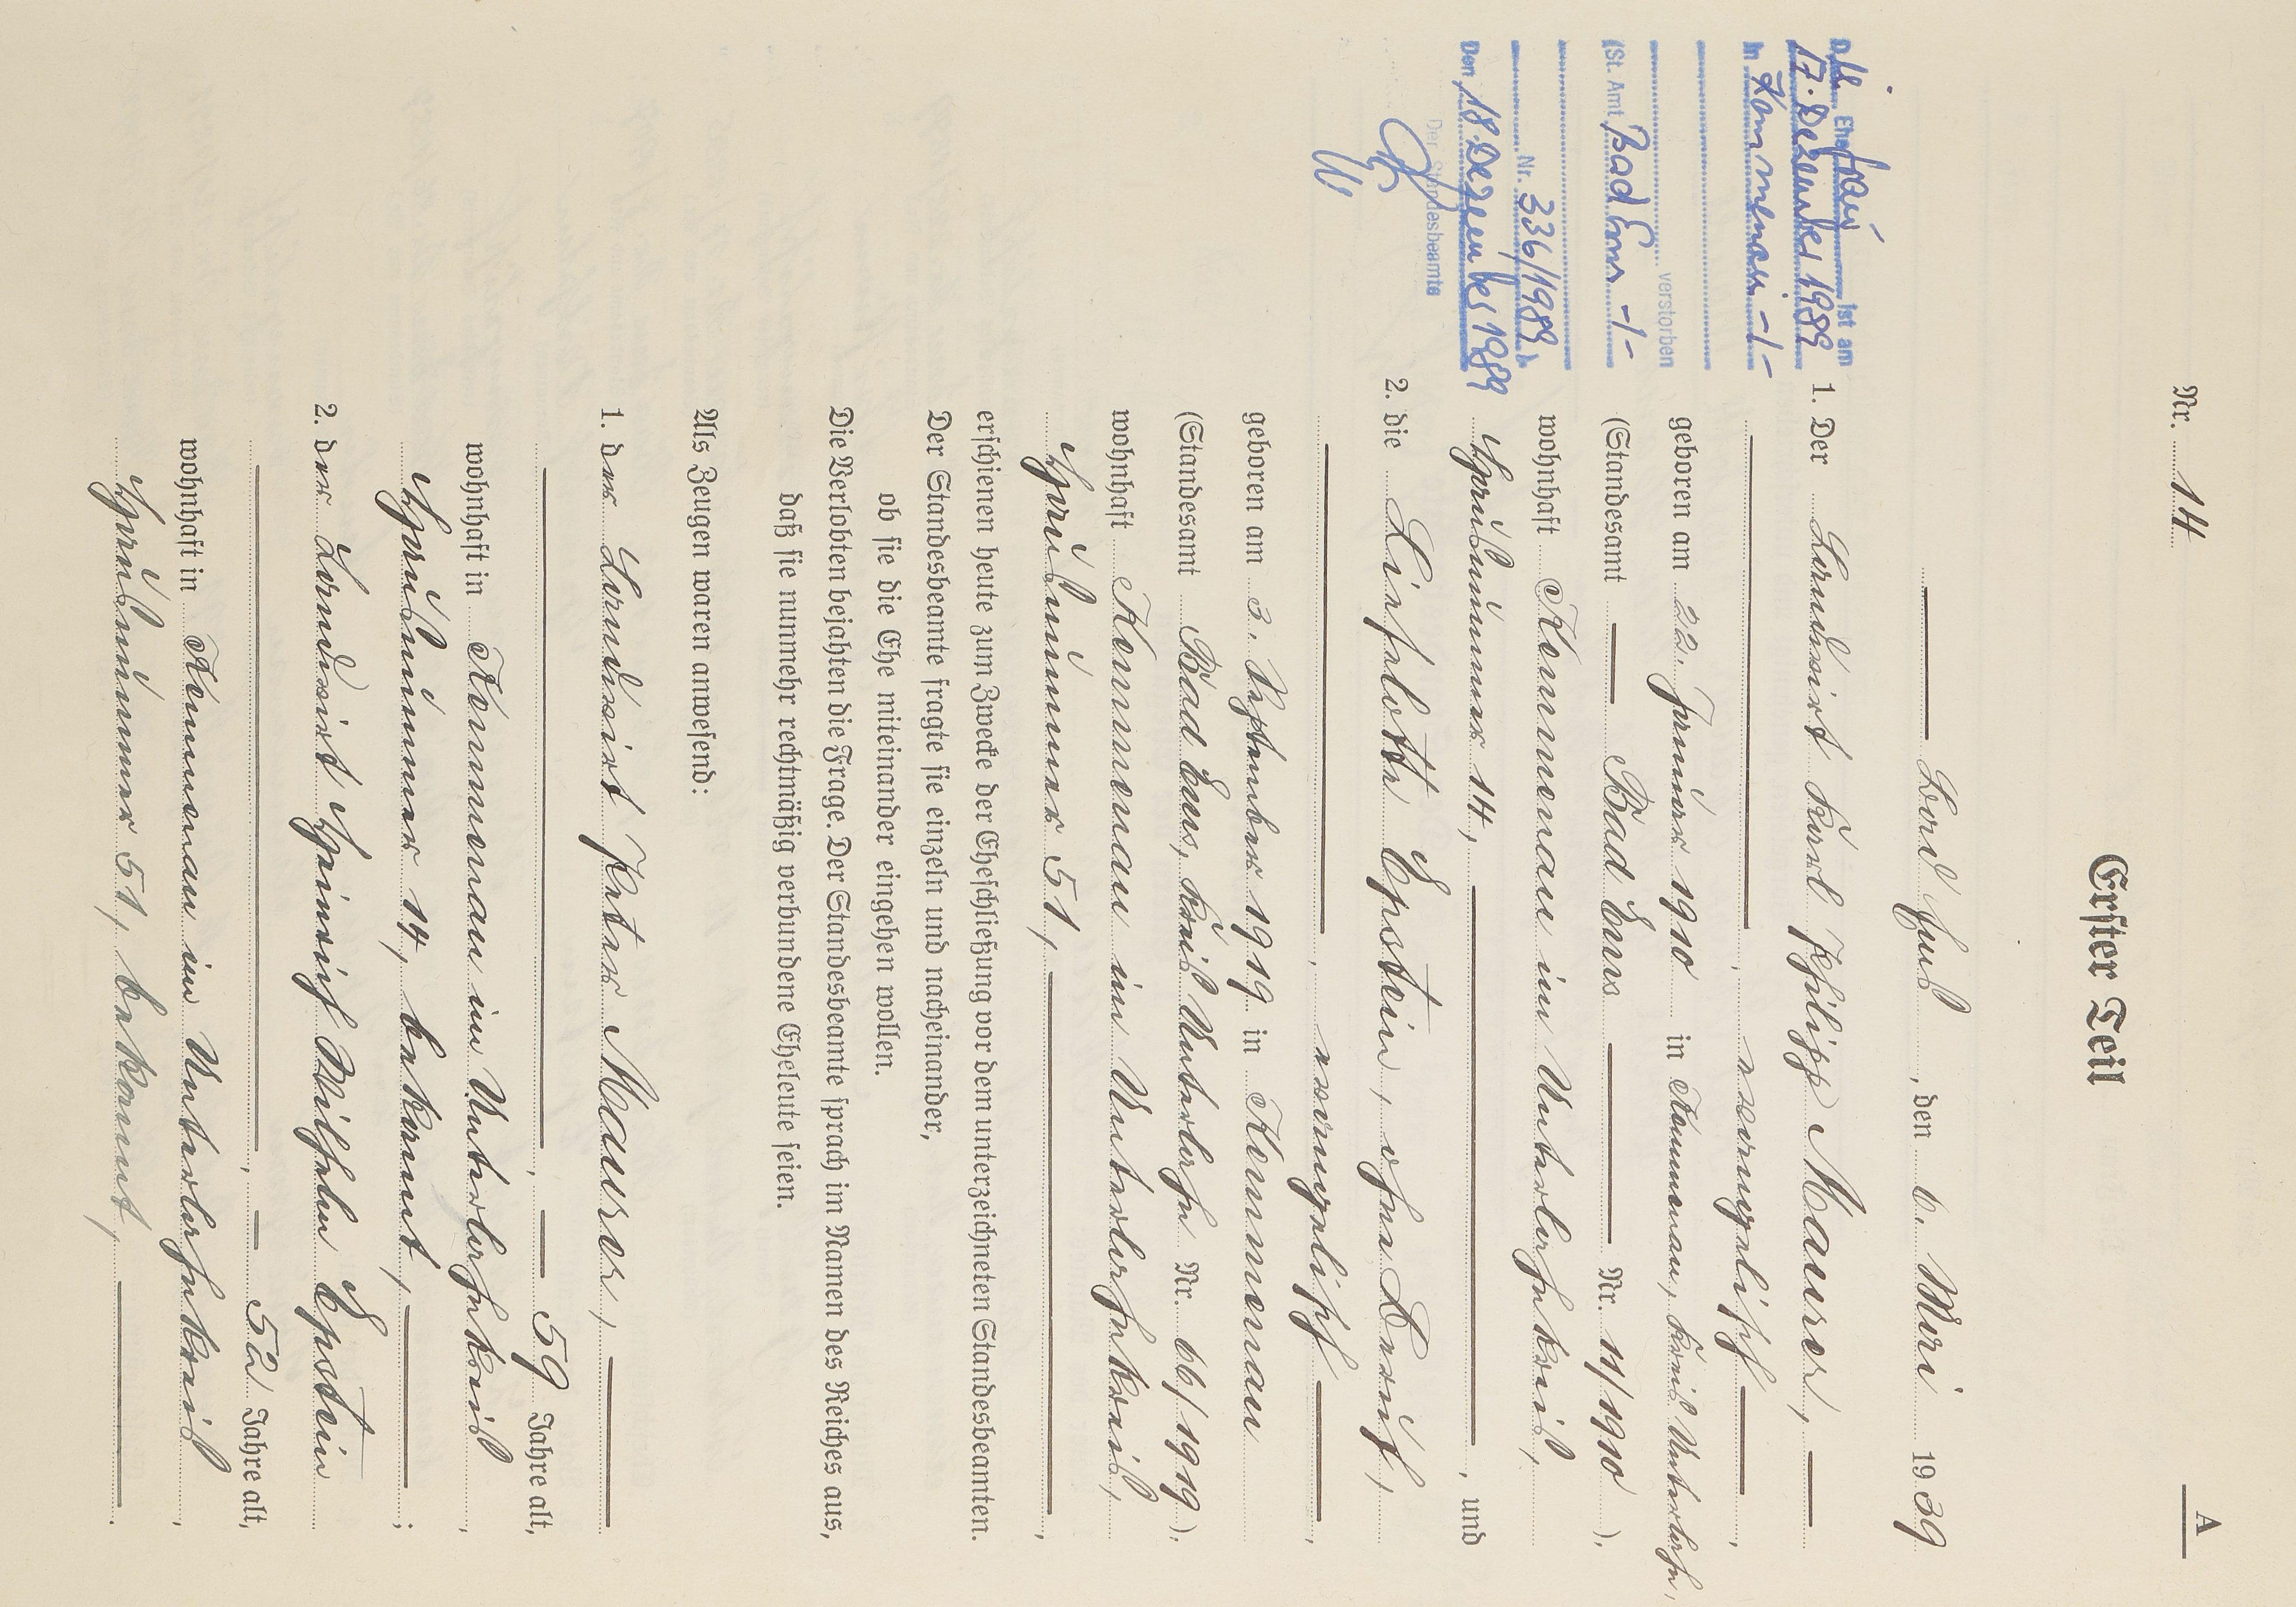 A
Nr. 14
Erster Teil
Bad Ems, den 6. Mai 1939
1. Der Landwirt Karl Philipp Maurer,
, evangelisch,
geboren am 22. Januar 1910 in Kemmenau, Kreis Unterlahn,
(Standesamt Bad Ems Nr. 11/1910),
wohnhaft Kemmenau im Unterlahnkreis,
Hausnummer 14, , und
2. die Lieselotte Epstein, ohne Beruf,
, evangelisch,
geboren am 3. September 1919 in Kemmenau
(Standesamt Bad Ems, Kreis Unterlahn Nr. 66/1919),
wohnhaft Kemmenau im Unterlahnkreis,
Hausnummer 51,
erschienen heute zum Zwecke der Eheschließung vor dem unterzeichneten Standesbeamten.
Der Standesbeamte fragte sie einzeln und nacheinander,
ob sie die Ehe miteinander eingehen wollen.
Die Verlobten bejahten die Frage. Der Standesbeamte sprach im Namen des Reiches aus,
daß sie nunmehr rechtmäßig verbundene Eheleute seien.
Als Zeugen waren anwesend:
1. der Landwirt Peter Maurer,
, 59 Jahre alt,
wohnhaft in Kemmenau im Unterlahnkreis,
Hausnummer 14, bekannt, ;
2. der Landwirt Heinrich Wilhelm Epstein
, 52 Jahre alt,
wohnhaft in Kemmenau im Unterlahnkreis,
Hausnummer 51, bekannt, .
Die Ehefrau ist am
17. Dezember 1989
in Kemmenau -/-
verstorben
(St. Amt Bad Ems -/-
Nr. 336/1989)
Den 18. Dezember 1989
Der Standesbeamte